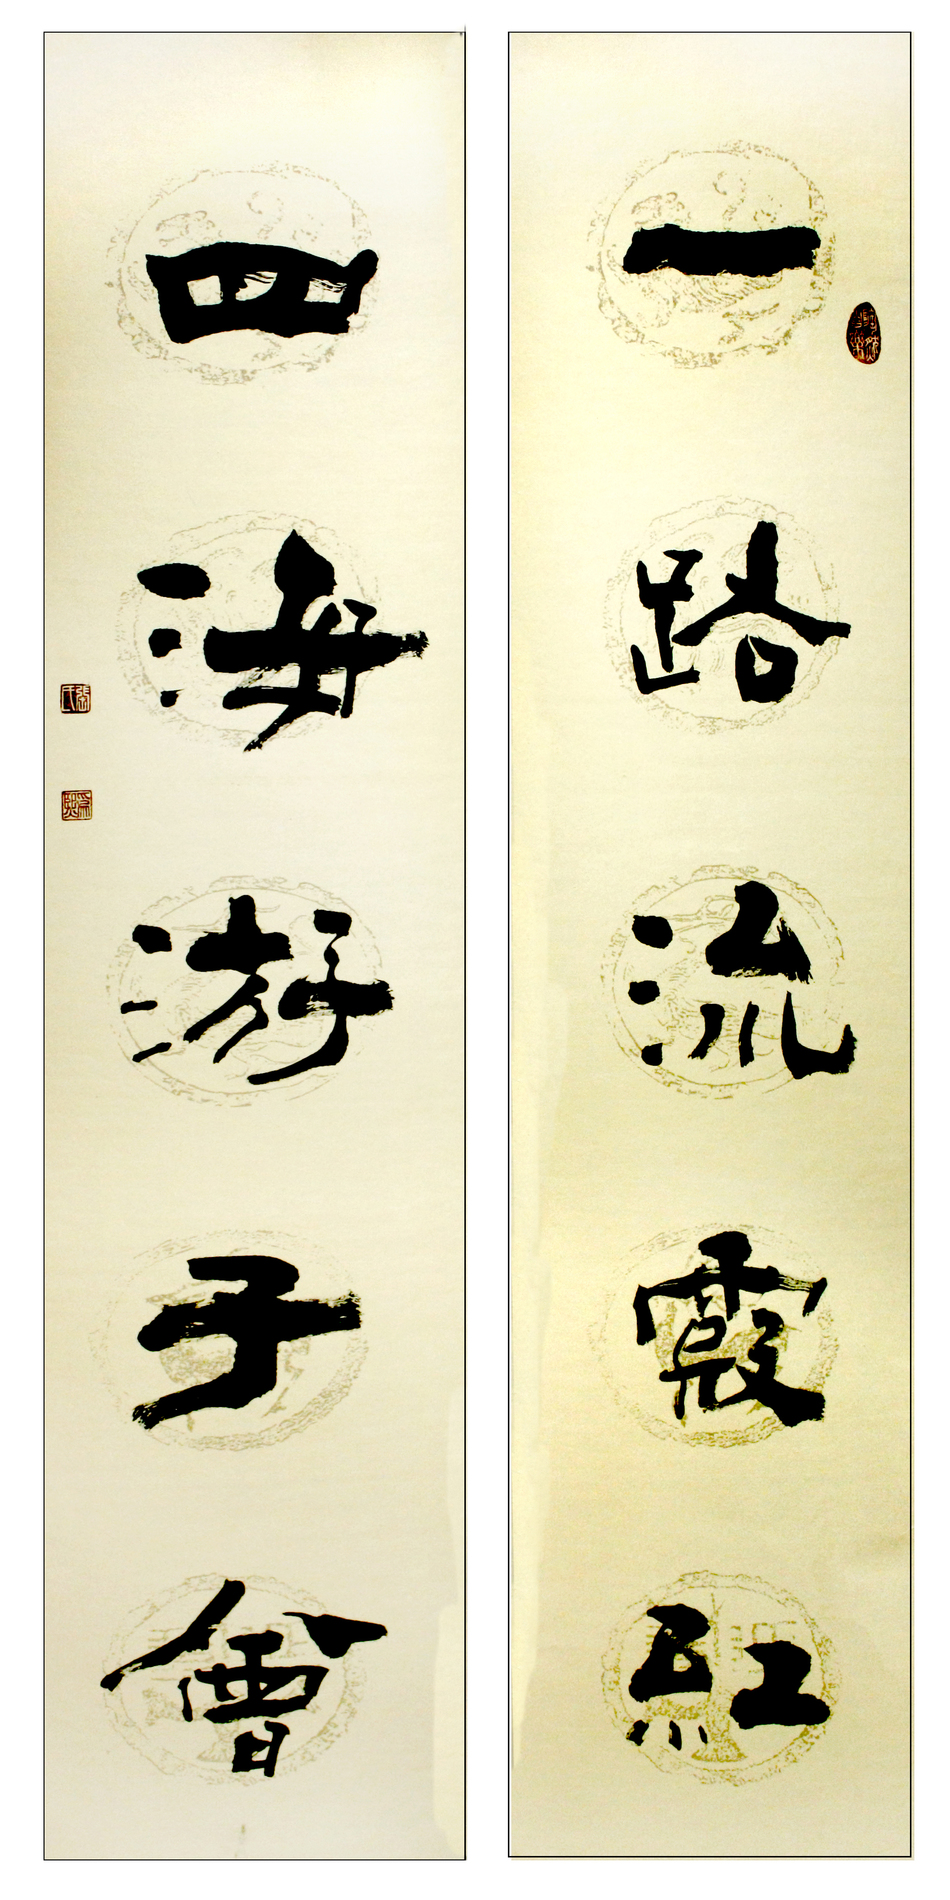 一路流霞紅
四海游子會